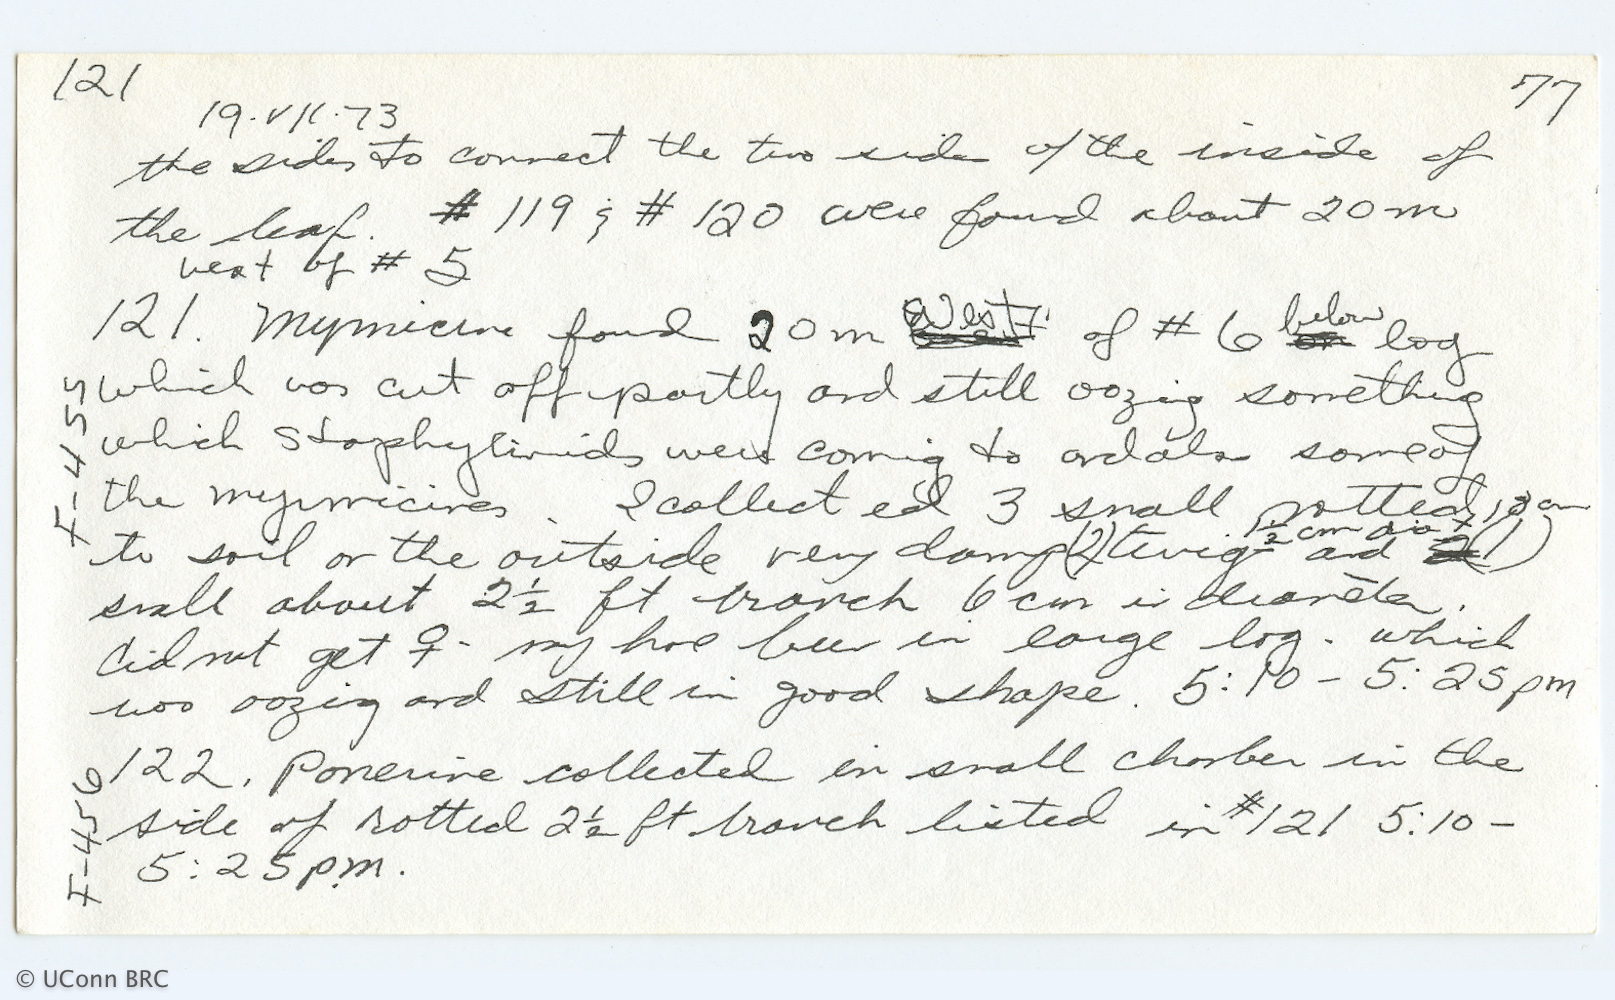 121
77
19·VII·73
the sides to connect the two side of the inside of
the leaf. # 119 & # 120 were found about 20m
west of # 5
121. Myrmicine found 20m West of # 6 below log
which was cut off partly and still oozing something
which Staphylinids were coming to and also some of
the myrmicines. I collected 3 small rotted
to soil on the outside very damp (2) twigs 1/2 cm diat and (1)
small about 2 1/2 ft branch 6 cm in diameter.
did not get ♀. may have been in large log. which
was oozing and still in good shape. 5:10 - 5:25pm
122. Ponerine collected in small chamber in the
side of rotted 2 1/2 ft branch listed in #121 5:10 -
5:25pm.
F-455
F-456
© UConn BRC